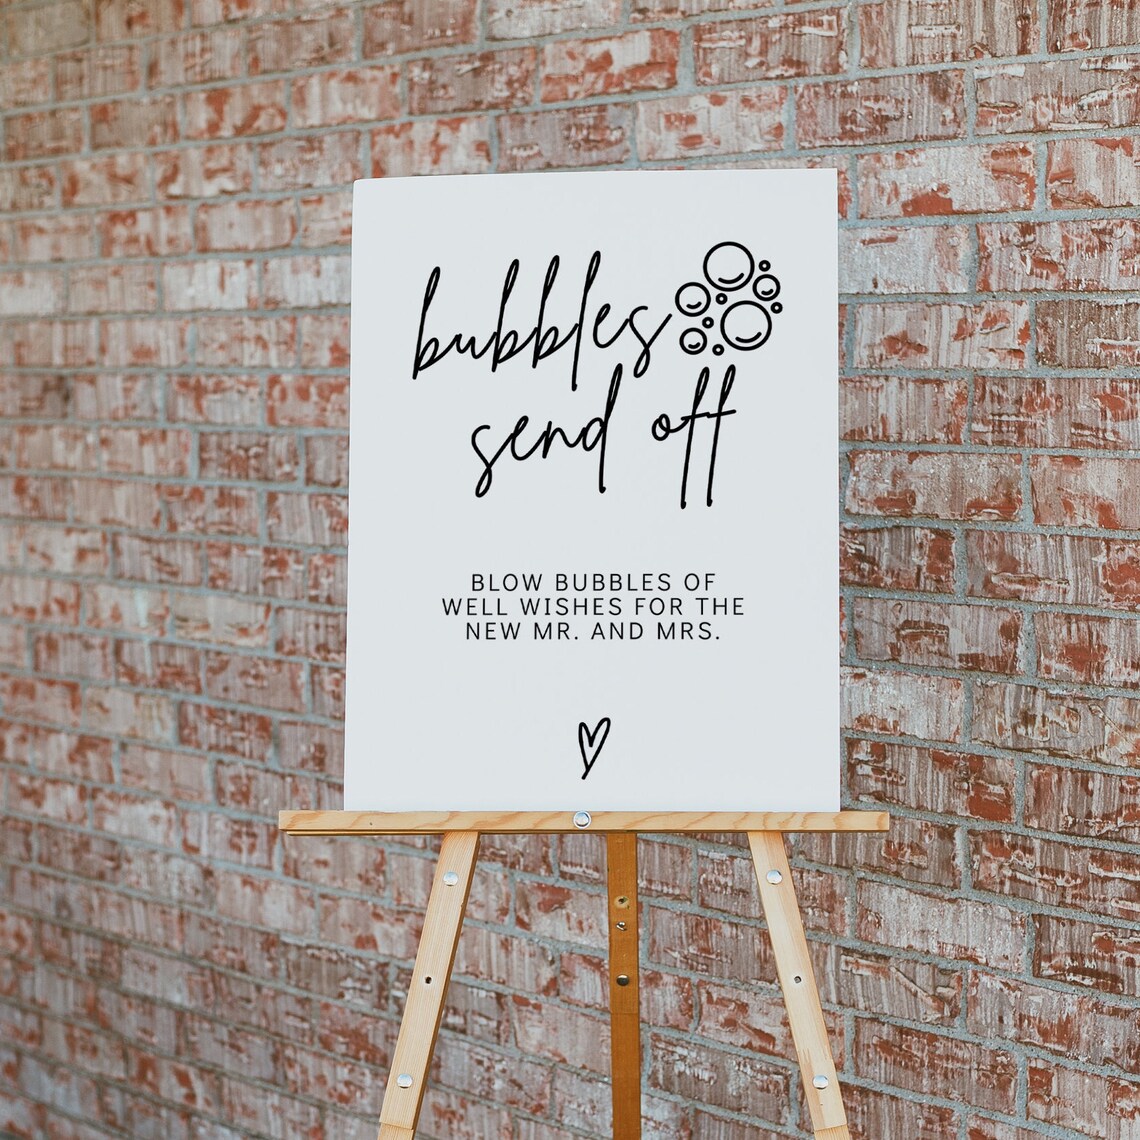 bubbles
send off
BLOW BUBBLES OF
WELL WISHES FOR THE
NEW MR. AND MRS.